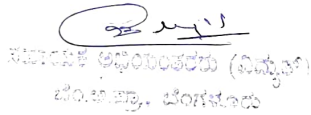 ಸಹಾಯಕ ಅಭಿಯಂತರರು (ವಿದ್ಯುತ್)
ಬೆಂ.ಅ.ಪ್ರಾ., ಬೆಂಗಳೂರು